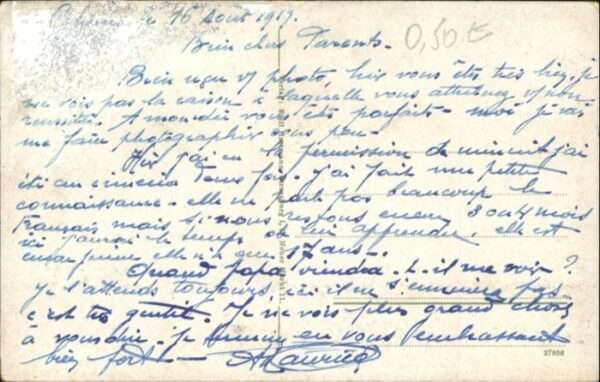 le 16 Août 1919.
Bien chers Parents.
0,50 €
Bien reçu vos photo, hier vous êtes très bien, je
ne vois pas la raison à laquelle vous attribuez
vous êtes parfaits - moi je vais
me faire photographier sous peu -
Hier j'ai eu la permission de minuit j'ai
été au cinéma J'ai fait une petite
connaissance - elle ne parle pas beaucoup le
français mais si nous restons encore 3 ou 4 mois
ici j'aurai le temps de lui apprendre, elle est
encore jeune elle n'a que 17 ans -
Quand papa viendra-t-il me voir ?
je l'attends toujours, ici il ne s'ennuiera pas
c'est très gentil. Je ne vois plus grand chose
à vous dire. je termine en vous embrassant
bien fort - Maurice
27938